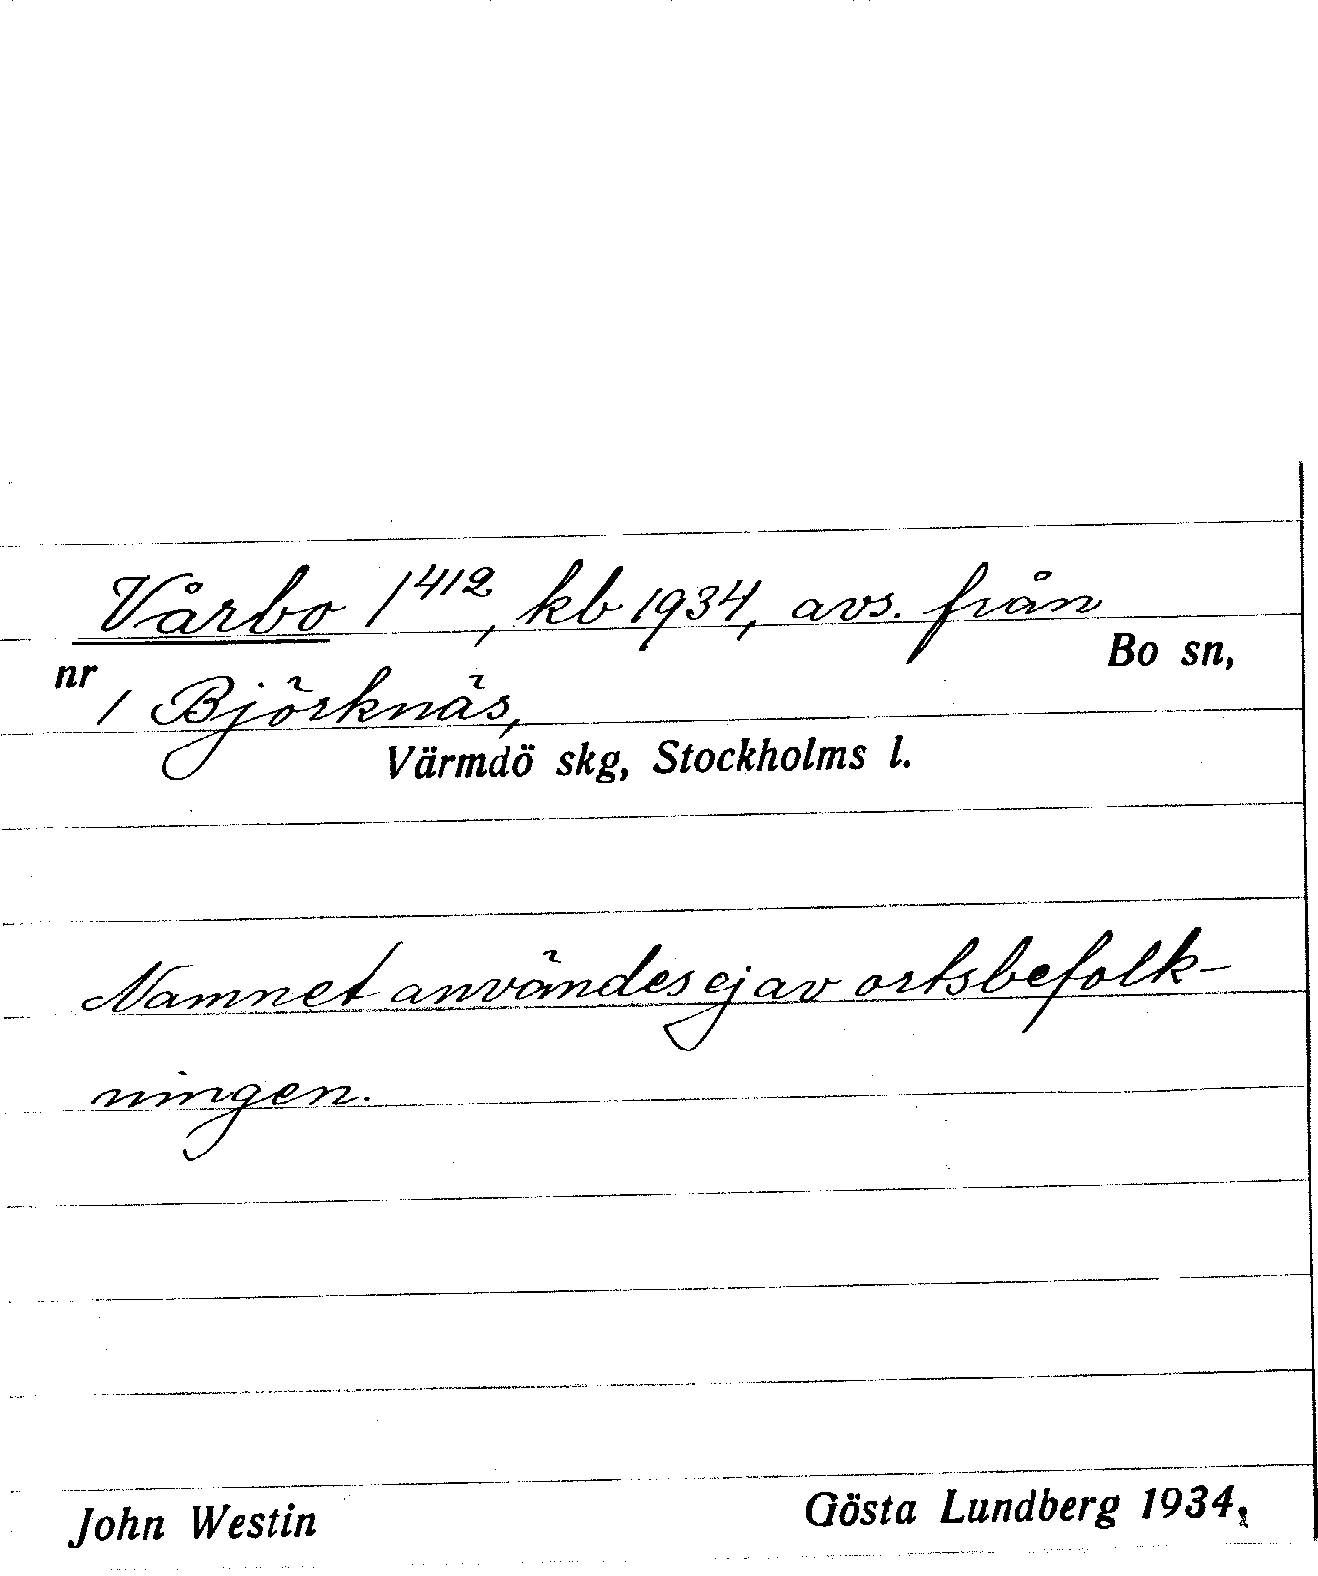 Vårbo 1⁴¹², kb 1934, avs. från
Bo sn,
nr 1 Björknäs,
Värmdö skg, Stockholms l.
Namnet användes ej av ortsbefolk-
ningen.
John Westin Gösta Lundberg 1934,